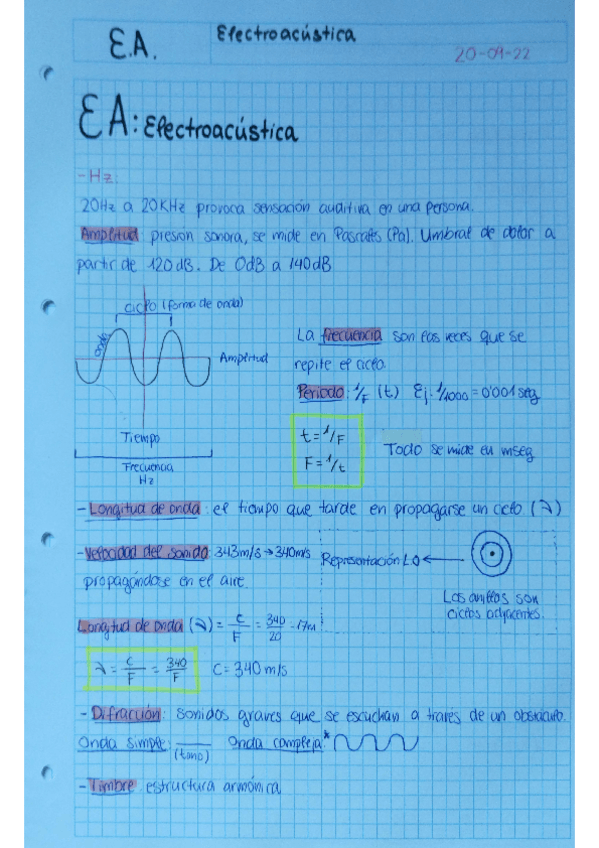 E.A.
Electroacústica
20-09-22
EA: Electroacústica
- Hz:
20Hz a 20KHz provoca sensación auditiva en una persona.
Amplitud: presion sonora, se mide en Pascales (Pa). Umbral de dolor a
partir de 120 dB. De 0dB a 140dB
ciclo (forma de onda)
onda
Amplitud
Tiempo
Frecuencia
Hz
La frecuencia son las veces que se
repite el ciclo.
Periodo: 1/F (t) Ej: 1/1000 = 0'001 seg
t = 1/F
F = 1/t
Todo se mide en mseg
- Longitud de onda: el tiempo que tarde en propagarse un ciclo (λ)
- Velocidad del sonido: 343m/s → 340m/s
propagándose en el aire.
Representación L.O
Los anillos son
ciclos adyacentes.
Longitud de onda (λ) = c/F = 340/20 = 17m
λ = c/F = 340/F
C = 340 m/s
- Difracción: sonidos graves que se escuchan a través de un obstáculo.
Onda simple: (tono) Onda compleja*
- Timbre: estructura armónica